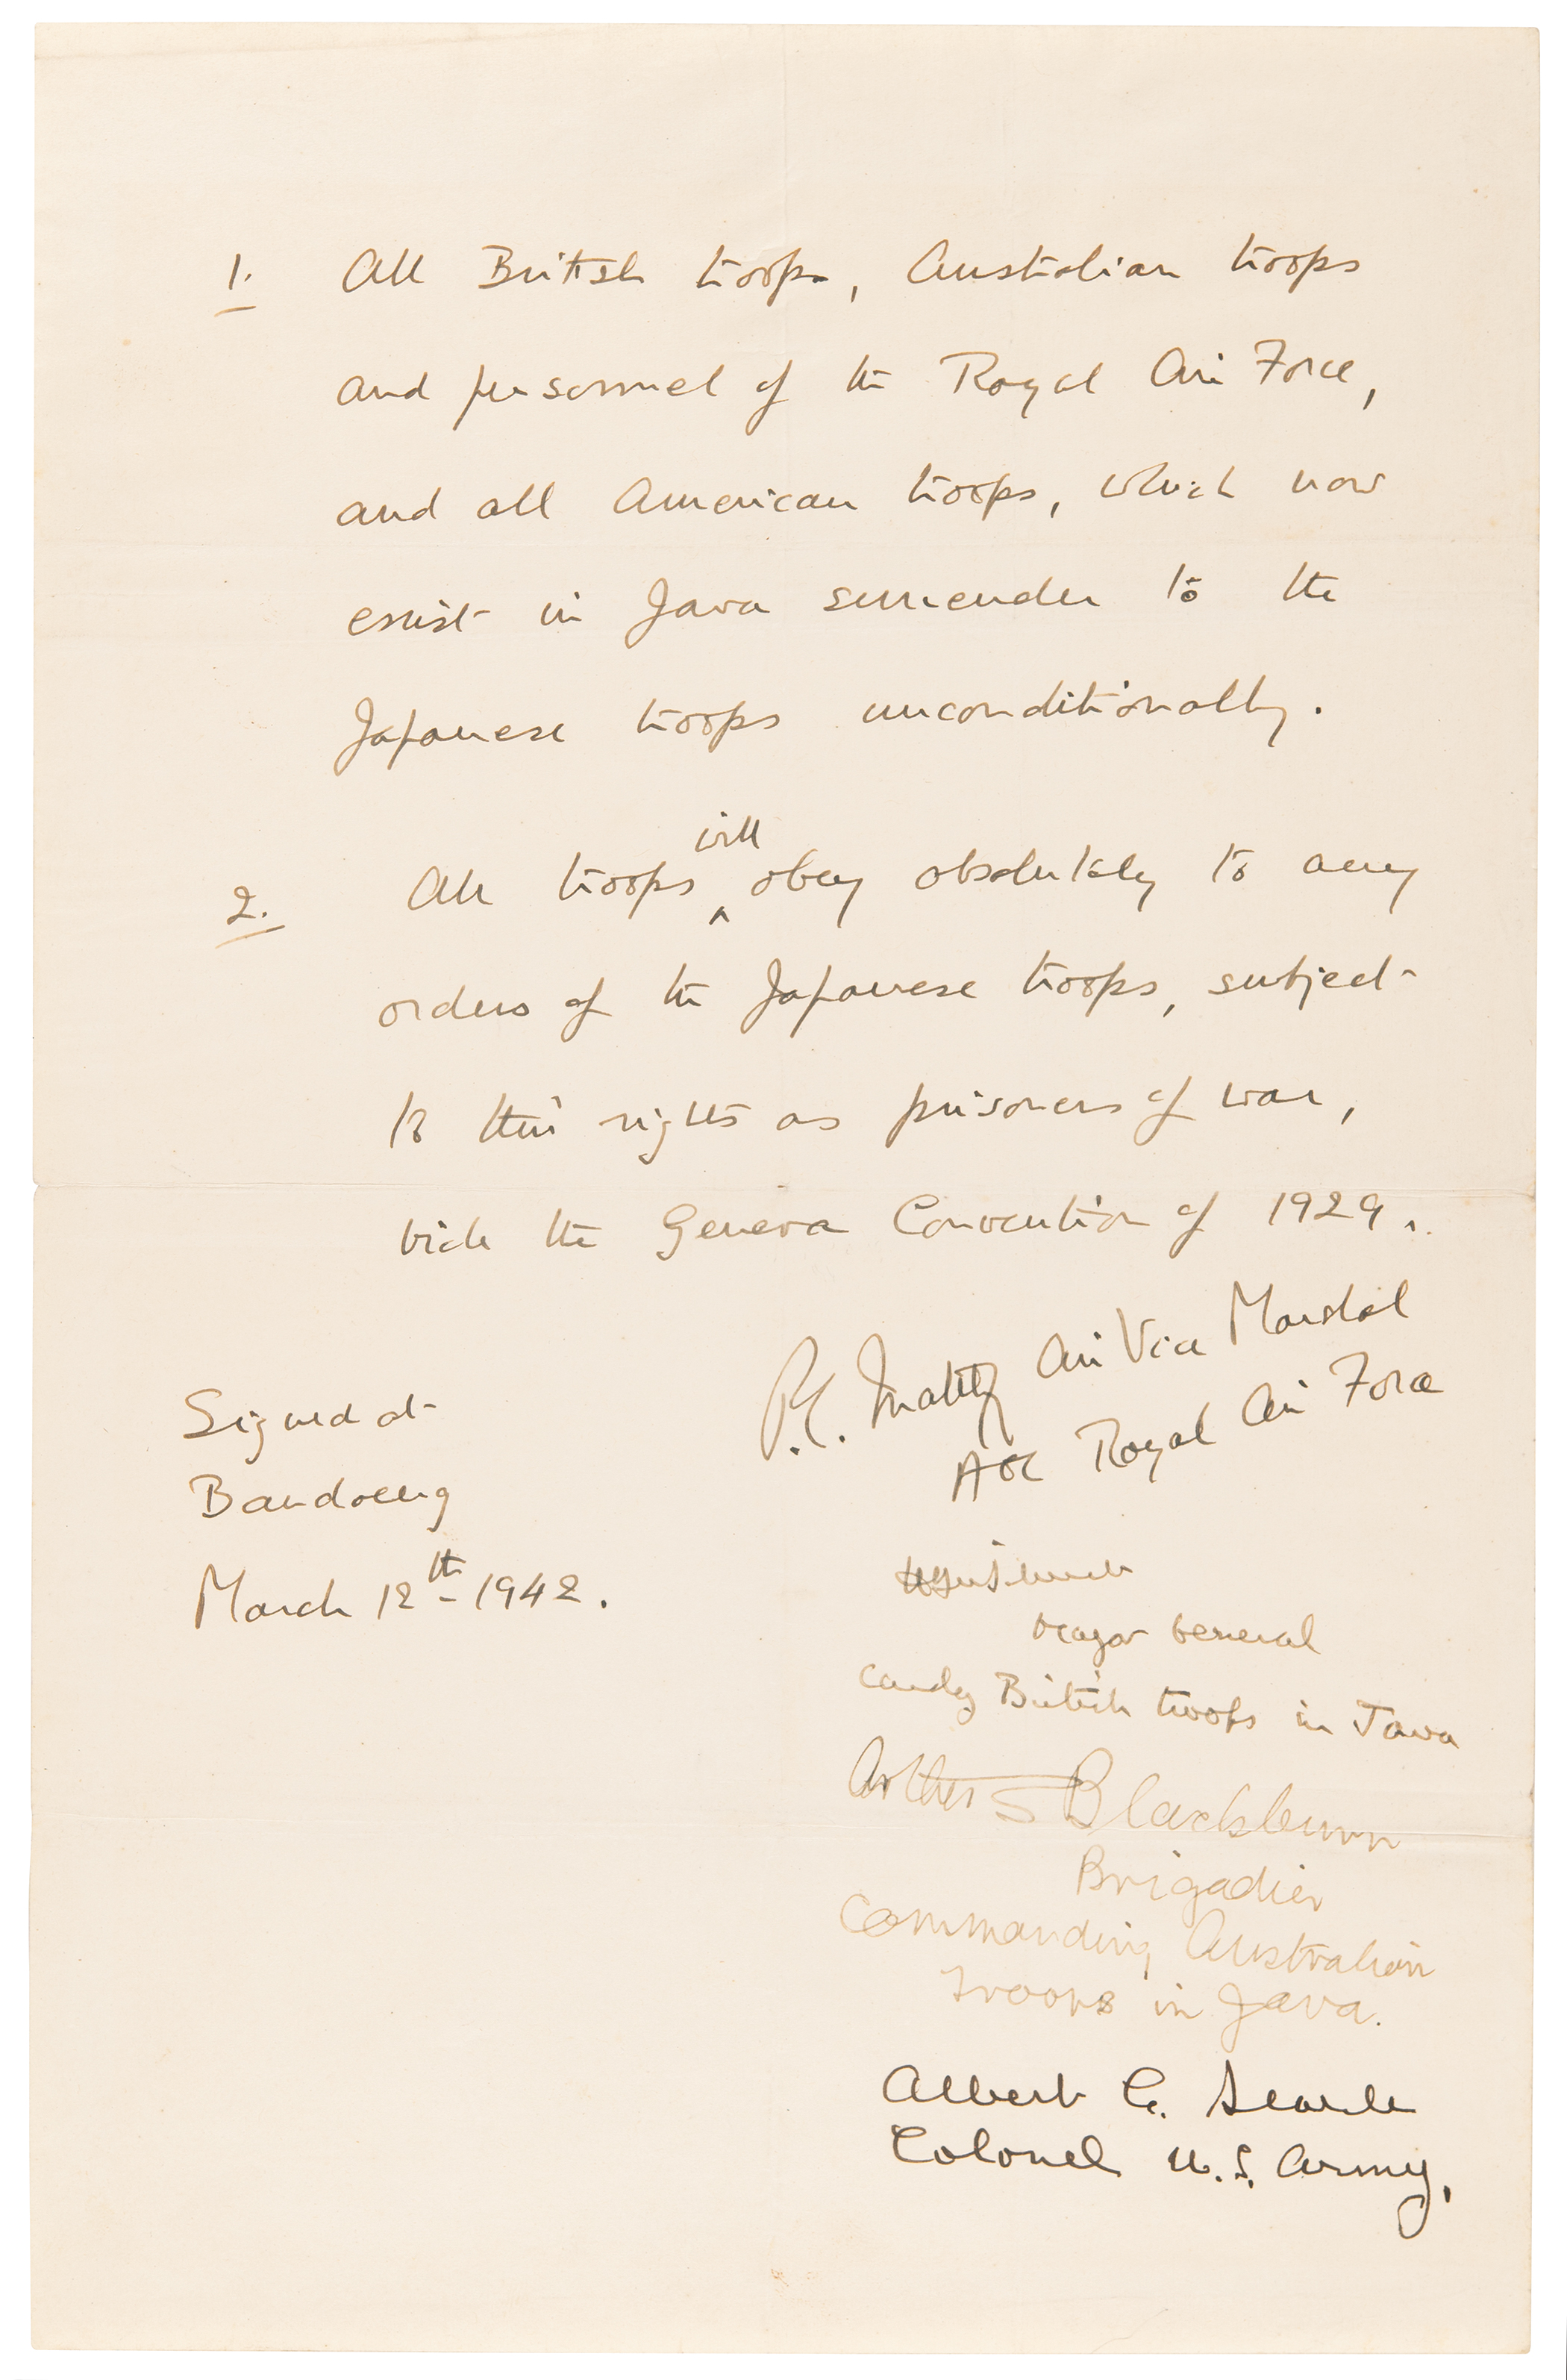 1. All British troops, Australian troops
and personnel of the Royal Air Force,
and all American troops, which now
exist in Java surrender to the
Japanese troops unconditionally.
will
2. All troops ^ obey absolutely to any
orders of the Japanese troops, subject
to their rights as prisoners of war,
vide the Geneva Convention of 1929.
P.C. Maltby Air Vice Marshal
AOC Royal Air Force
Signed at
Bandoeng
March 12th - 1942.
Major General
Comdg British troops in Java
Arthur S Blackburn
Brigadier
Commanding Australian
Troops in Java.
Albert C. Searle
Colonel U.S. Army.